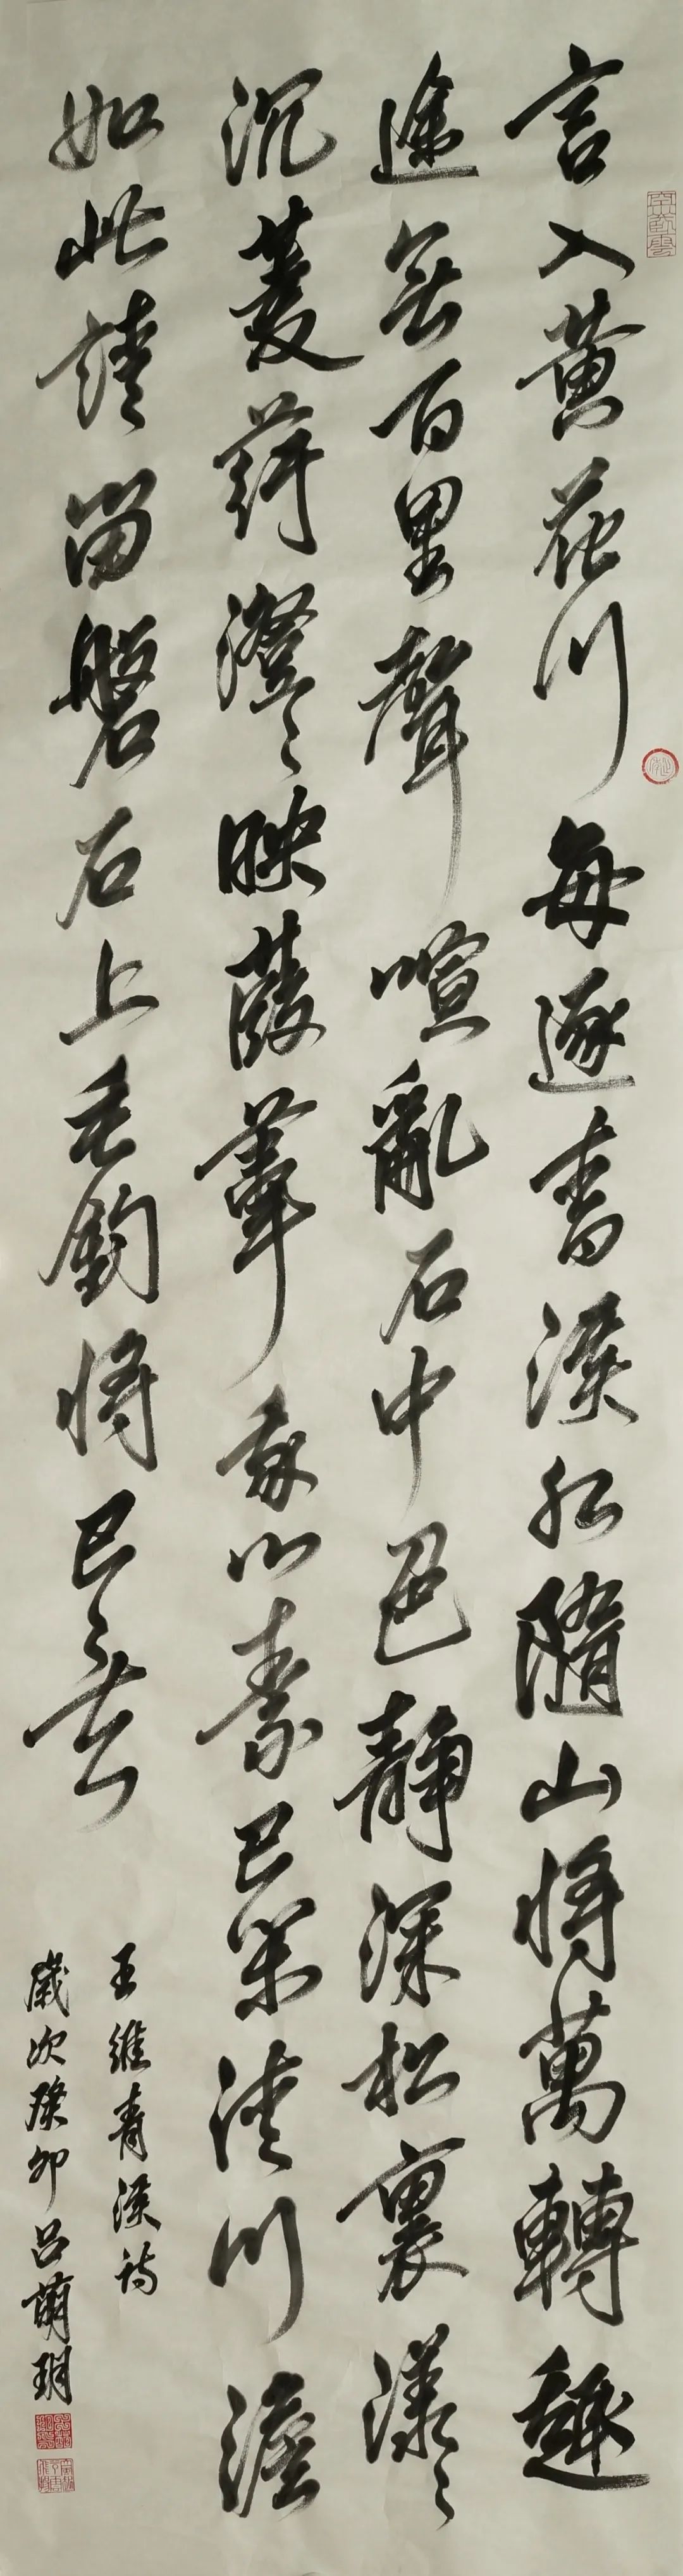 言入黃花川每逐青溪水隨山將萬轉趣
途無百里聲喧亂石中色靜深松裏漾々
沉菱荇澄々映葭葦我心素已閑清川澹
如此請留盤石上垂釣將已矣
王維青溪詩
歲次癸卯呂萌玥